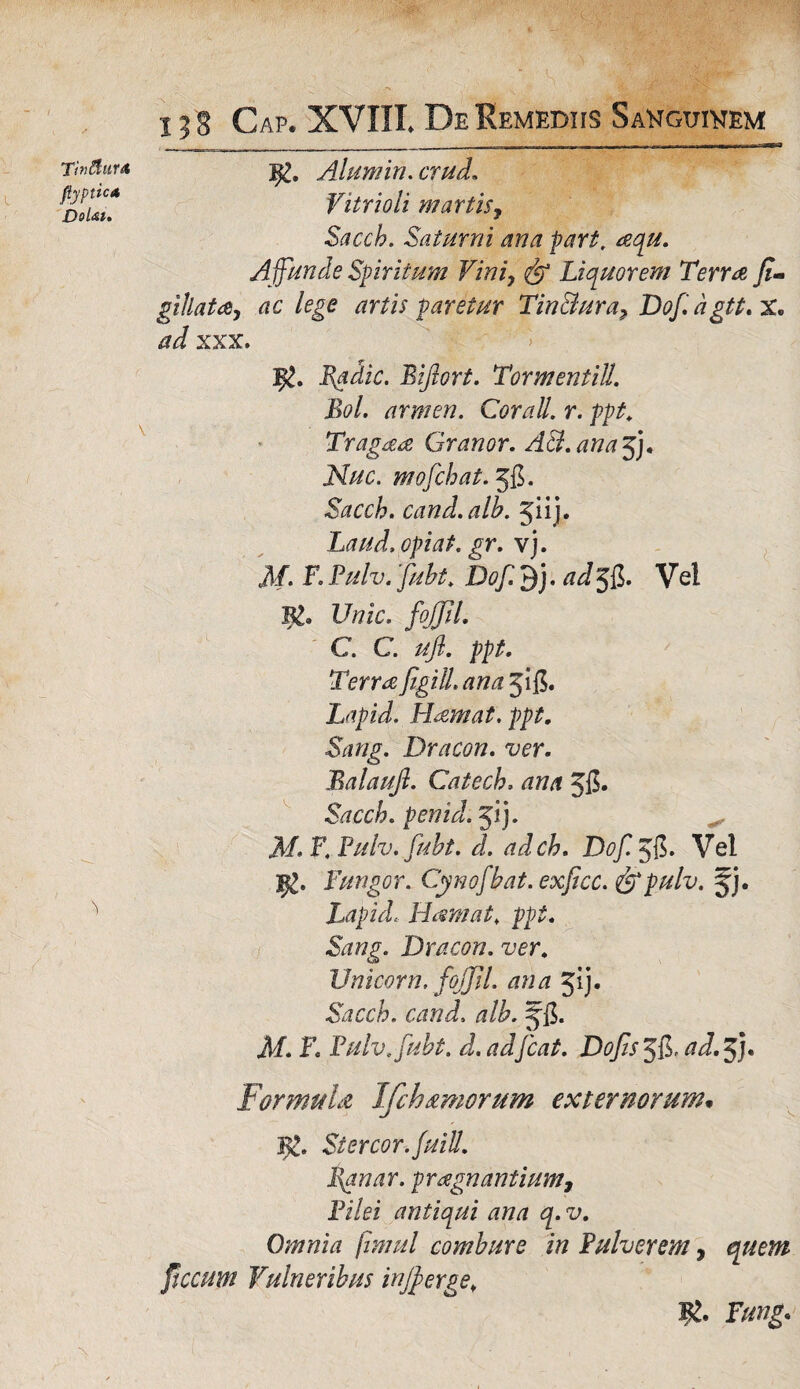 138 Cap. XVIII. De Remediis Sanguinem
Tinctura
ſtyptica
Dolæi.
℞. Alumin. crud.
Vitrioli martis,
Sacch. Saturni ana part. æqu.
Affunde Spiritum Vini, & Liquorem Terræ ſi-
gillatæ, ac lege artis paretur Tinctura, Doſ. à gtt. x.
ad xxx.
℞. Radic. Biſtort. Tormentill.
Bol. armen. Corall. r. ppt.
Tragææ Granor. Act. ana ʒj.
Nuc. moſchat. ʒß.
Sacch. cand. alb. ʒiij.
Laud. opiat. gr. vj.
M. F. Pulv. ſubt. Doſ. ℈j. ad ʒß. Vel
℞. Unic. foſſil.
C. C. uſt. ppt.
Terræ ſigill. ana ʒiß.
Lapid. Hæmat. ppt.
Sang. Dracon. ver.
Balauſt. Catech. ana ʒß.
Sacch. penid. ʒij.
M. F. Pulv. ſubt. d. ad ch. Doſ. ʒß. Vel
℞. Fungor. Cynoſbat. exſicc. & pulv. ℥j.
Lapid. Hæmat. ppt.
Sang. Dracon. ver.
Unicorn. foſſil. ana ʒij.
Sacch. cand. alb. ℥ß.
M. F. Pulv. ſubt. d. ad ſcat. Doſis ʒß. ad. ʒj.
Formulæ Iſchæmorum externorum.
℞. Stercor. ſuill.
Ranar. prægnantium,
Pilei antiqui ana q. v.
Omnia ſimul combure in Pulverem, quem
ſiccum Vulneribus inſperge.
℞. Fung.